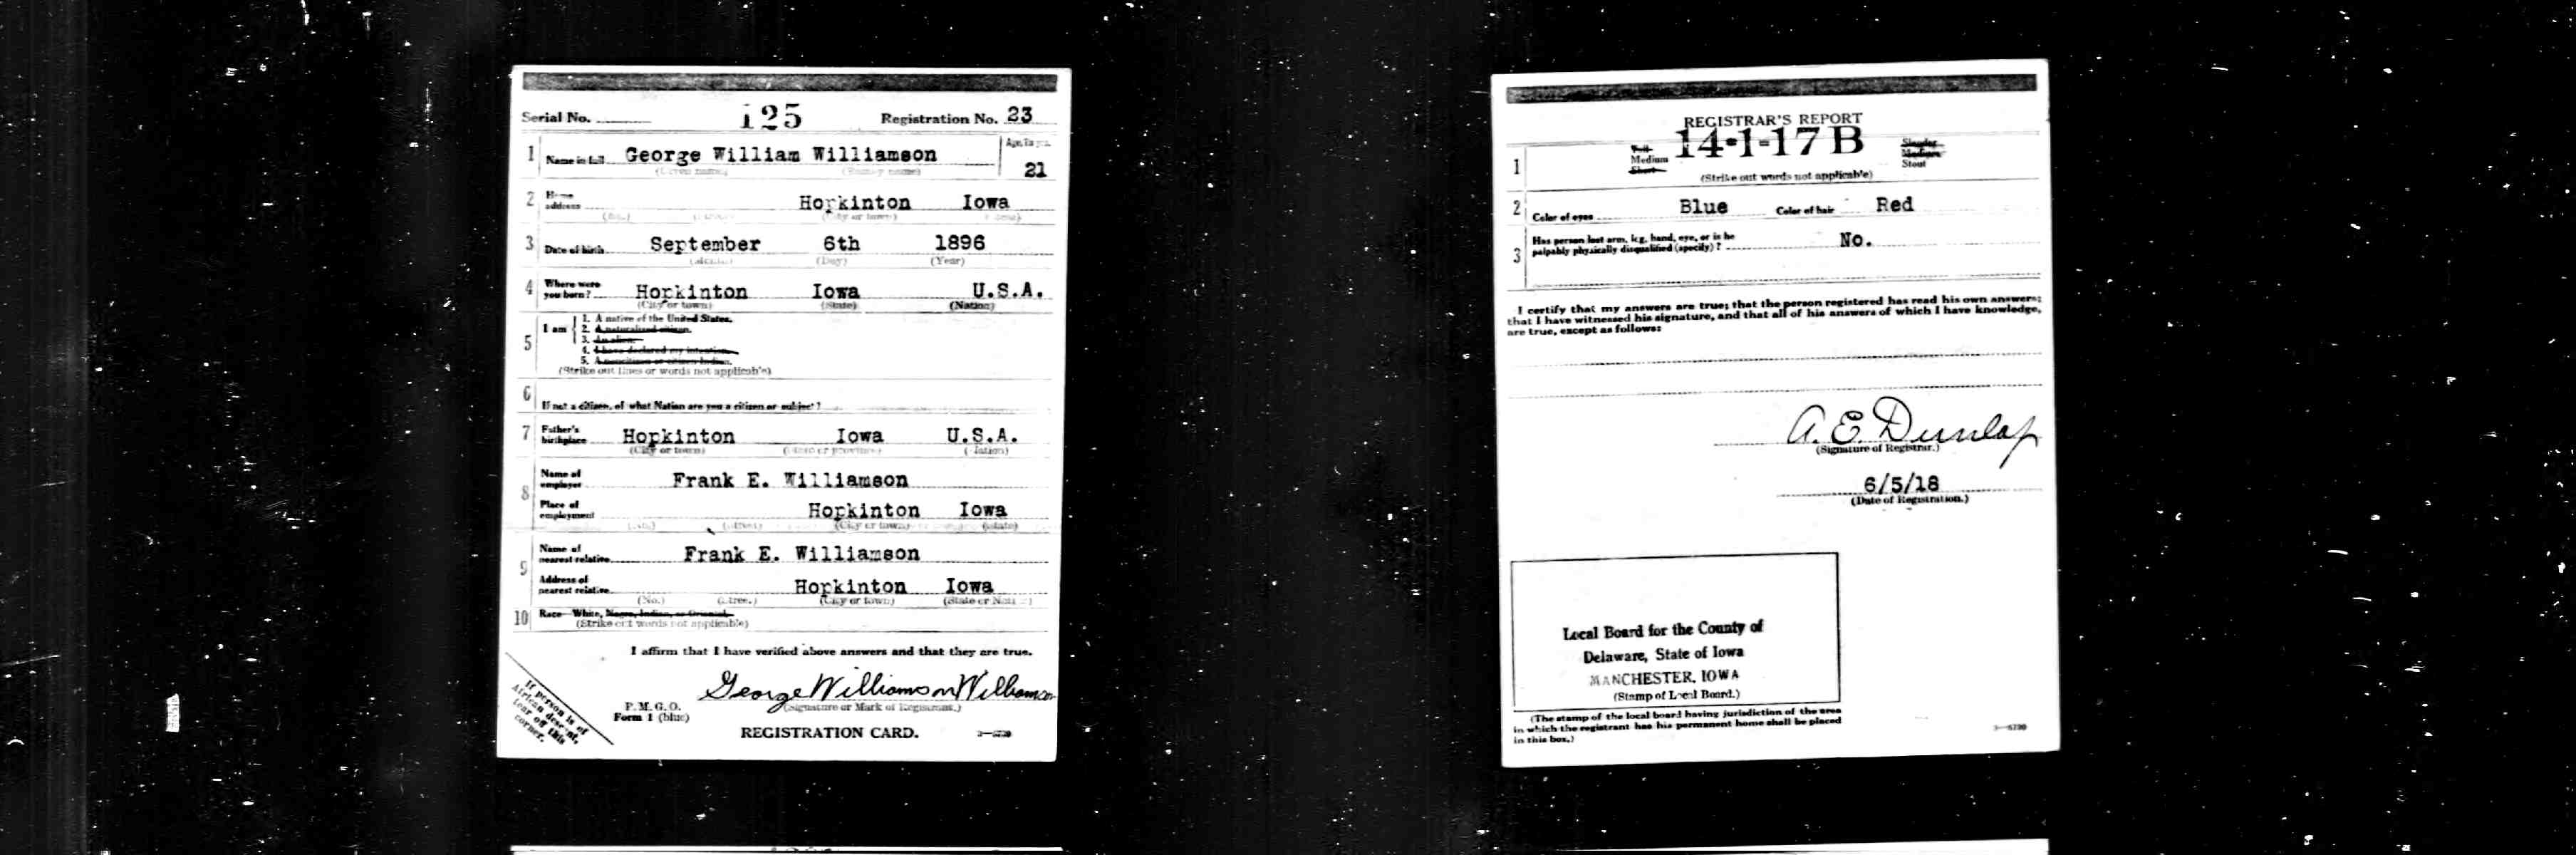 Serial No. 125 Registration No. 23
1 Name in full George William Williamson Age, in yrs. 21
(Given name) (Family name)
2 Home address Hopkinton Iowa
(No.) (Street) (City or town) (State)
3 Date of birth September 6th 1896
(Month) (Day) (Year)
4 Where were you born? Hopkinton Iowa U.S.A.
(City or town) (State) (Nation)
5 I am
1. A native of the United States.
2. A naturalized citizen.
3. An alien.
4. I have declared my intention.
5. A noncitizen or citizen Indian.
(Strike out lines or words not applicable)
6 If not a citizen, of what Nation are you a citizen or subject?
7 Father's birthplace Hopkinton Iowa U.S.A.
(City or town) (State or province) (Nation)
8 Name of employer Frank E. Williamson
Place of employment Hopkinton Iowa
(No.) (Street) (City or town) (State)
9 Name of nearest relative Frank E. Williamson
Address of nearest relative Hopkinton Iowa
(No.) (Street) (City or town) (State or Nation)
10 Race—White, Negro, Indian, or Oriental.
(Strike out words not applicable)
I affirm that I have verified above answers and that they are true.
George Williamson Williamson
(Signature or Mark of Registrant.)
P. M. G. O.
Form 1 (blue)
REGISTRATION CARD.
If person is of
African descent,
tear off this
corner.
REGISTRAR'S REPORT
14-1-17 B
1 Tall Medium Short Slender Medium Stout
(Strike out words not applicable)
2 Color of eyes Blue Color of hair Red
3 Has person lost arm, leg, hand, eye, or is he
palpably physically disqualified (specify)? No.
I certify that my answers are true; that the person registered has read his own answers;
that I have witnessed his signature, and that all of his answers of which I have knowledge,
are true, except as follows:
A. E. Dunlap
(Signature of Registrar.)
6/5/18
(Date of Registration.)
Local Board for the County of
Delaware, State of Iowa
MANCHESTER, IOWA
(Stamp of Local Board.)
(The stamp of the local board having jurisdiction of the area
in which the registrant has his permanent home shall be placed
in this box.)